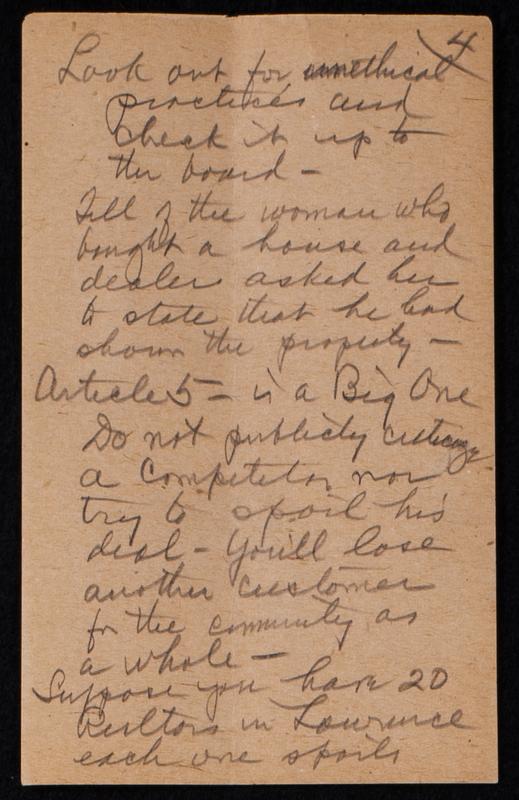 4
Look out for unethical
practices and
check it up to
the board -
Tell of the woman who
bought a house and
dealer asked her
to state that he had
shown the property -
Article 5 - is a Big One
Do not publicly criticize
a competitor nor
try to spoil his
deal - You'll lose
another customer
for the community as
a whole -
Suppose you have 20
Realtors in Lawrence
each one spoils